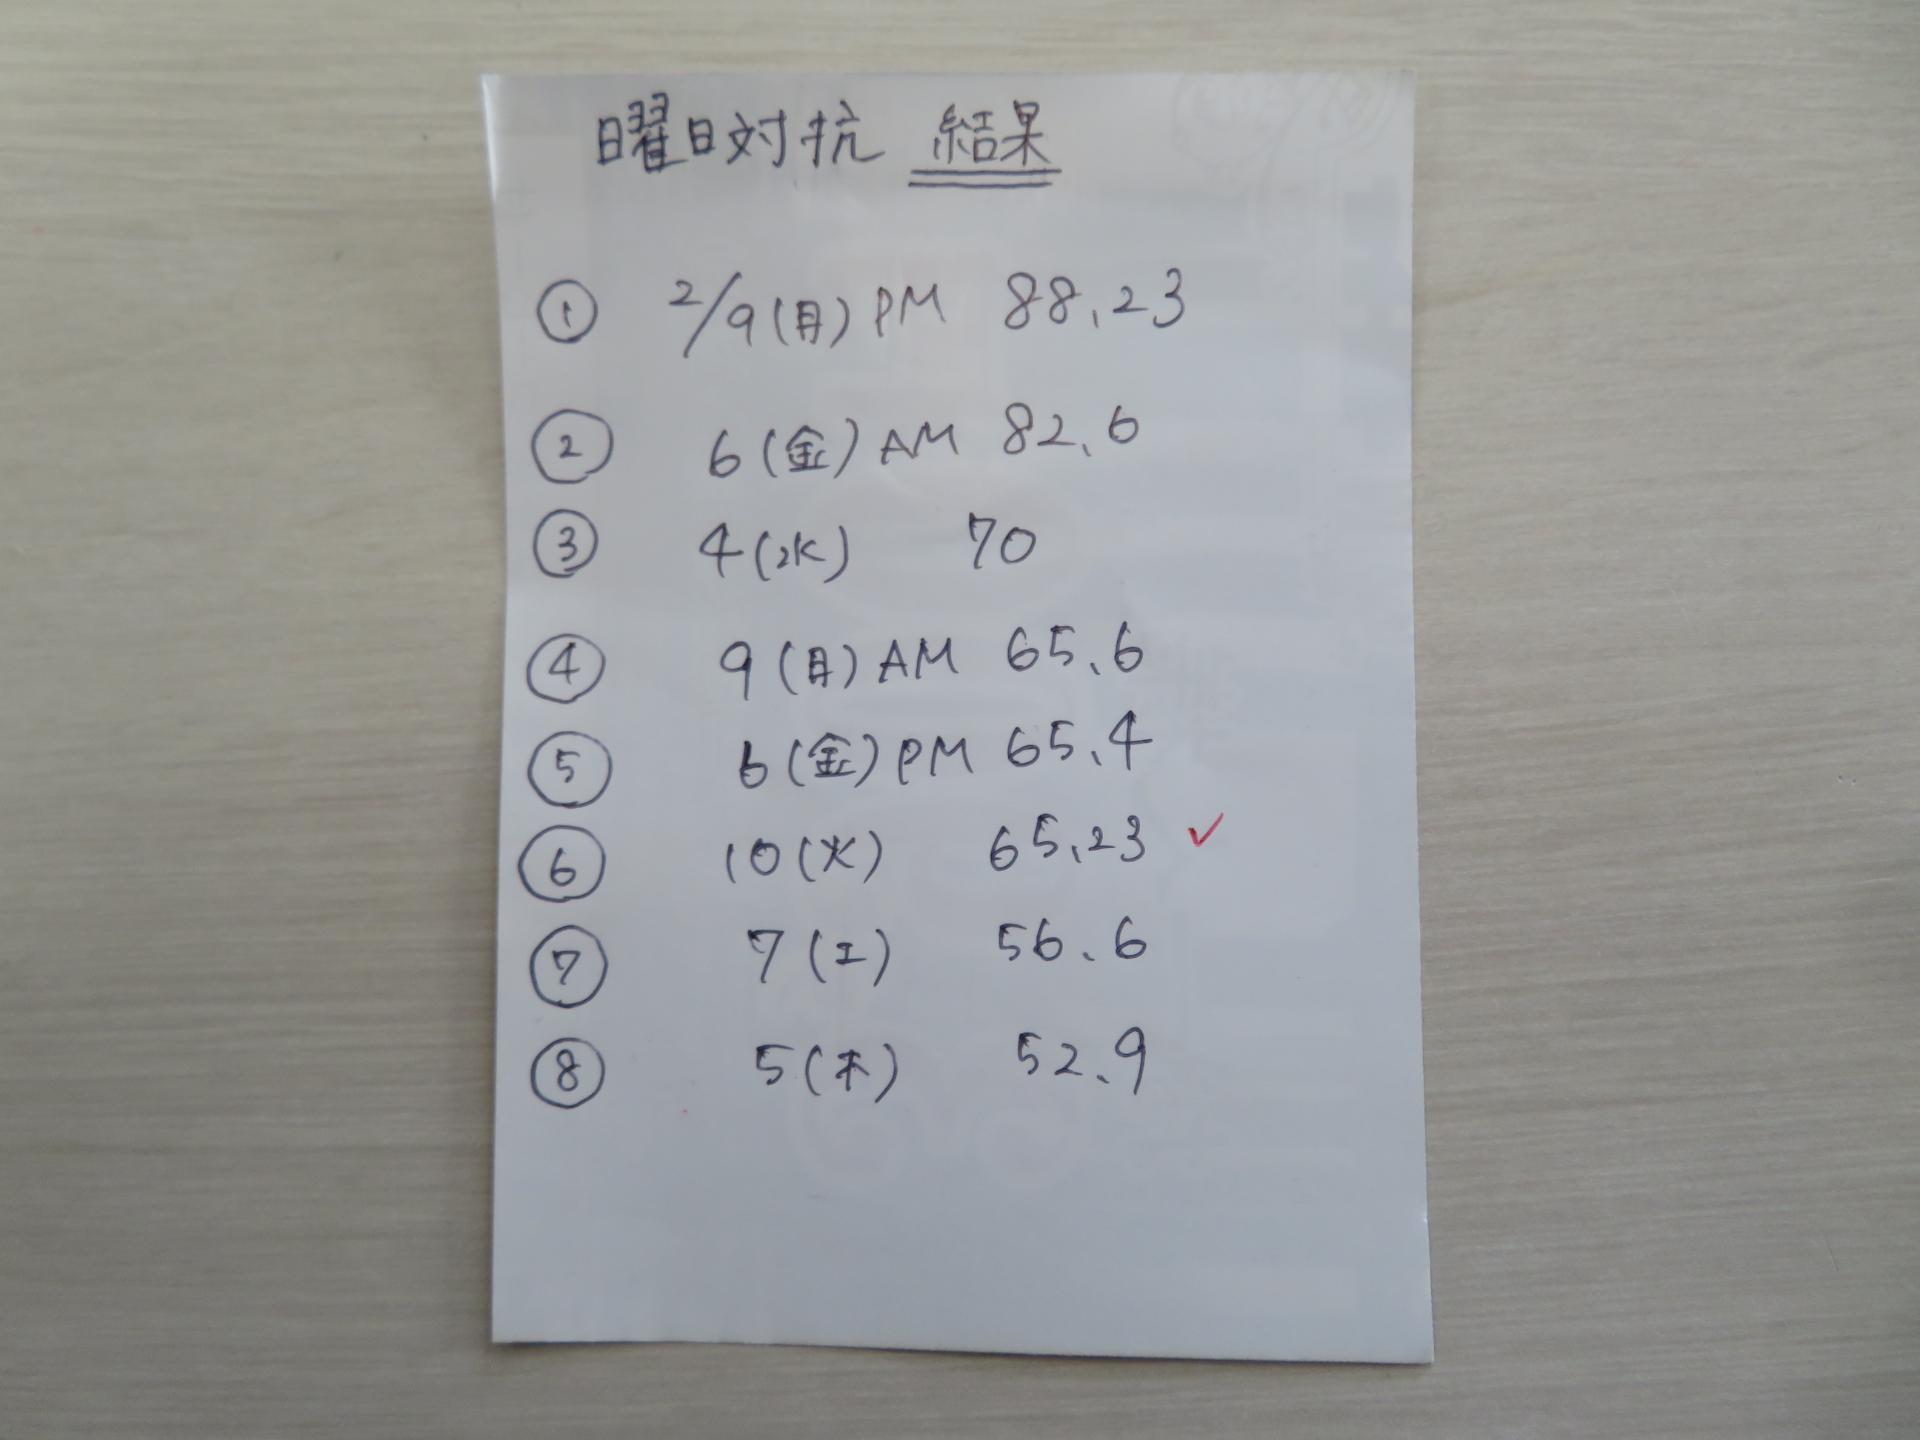 曜日対抗 結果
① 2/9(月)PM 88.23
② 6(金)AM 82.6
③ 4(水) 70
④ 9(月)AM 65.6
⑤ 6(金)PM 65.4
⑥ 10(火) 65.23 ✓
⑦ 7(土) 56.6
⑧ 5(木) 52.9